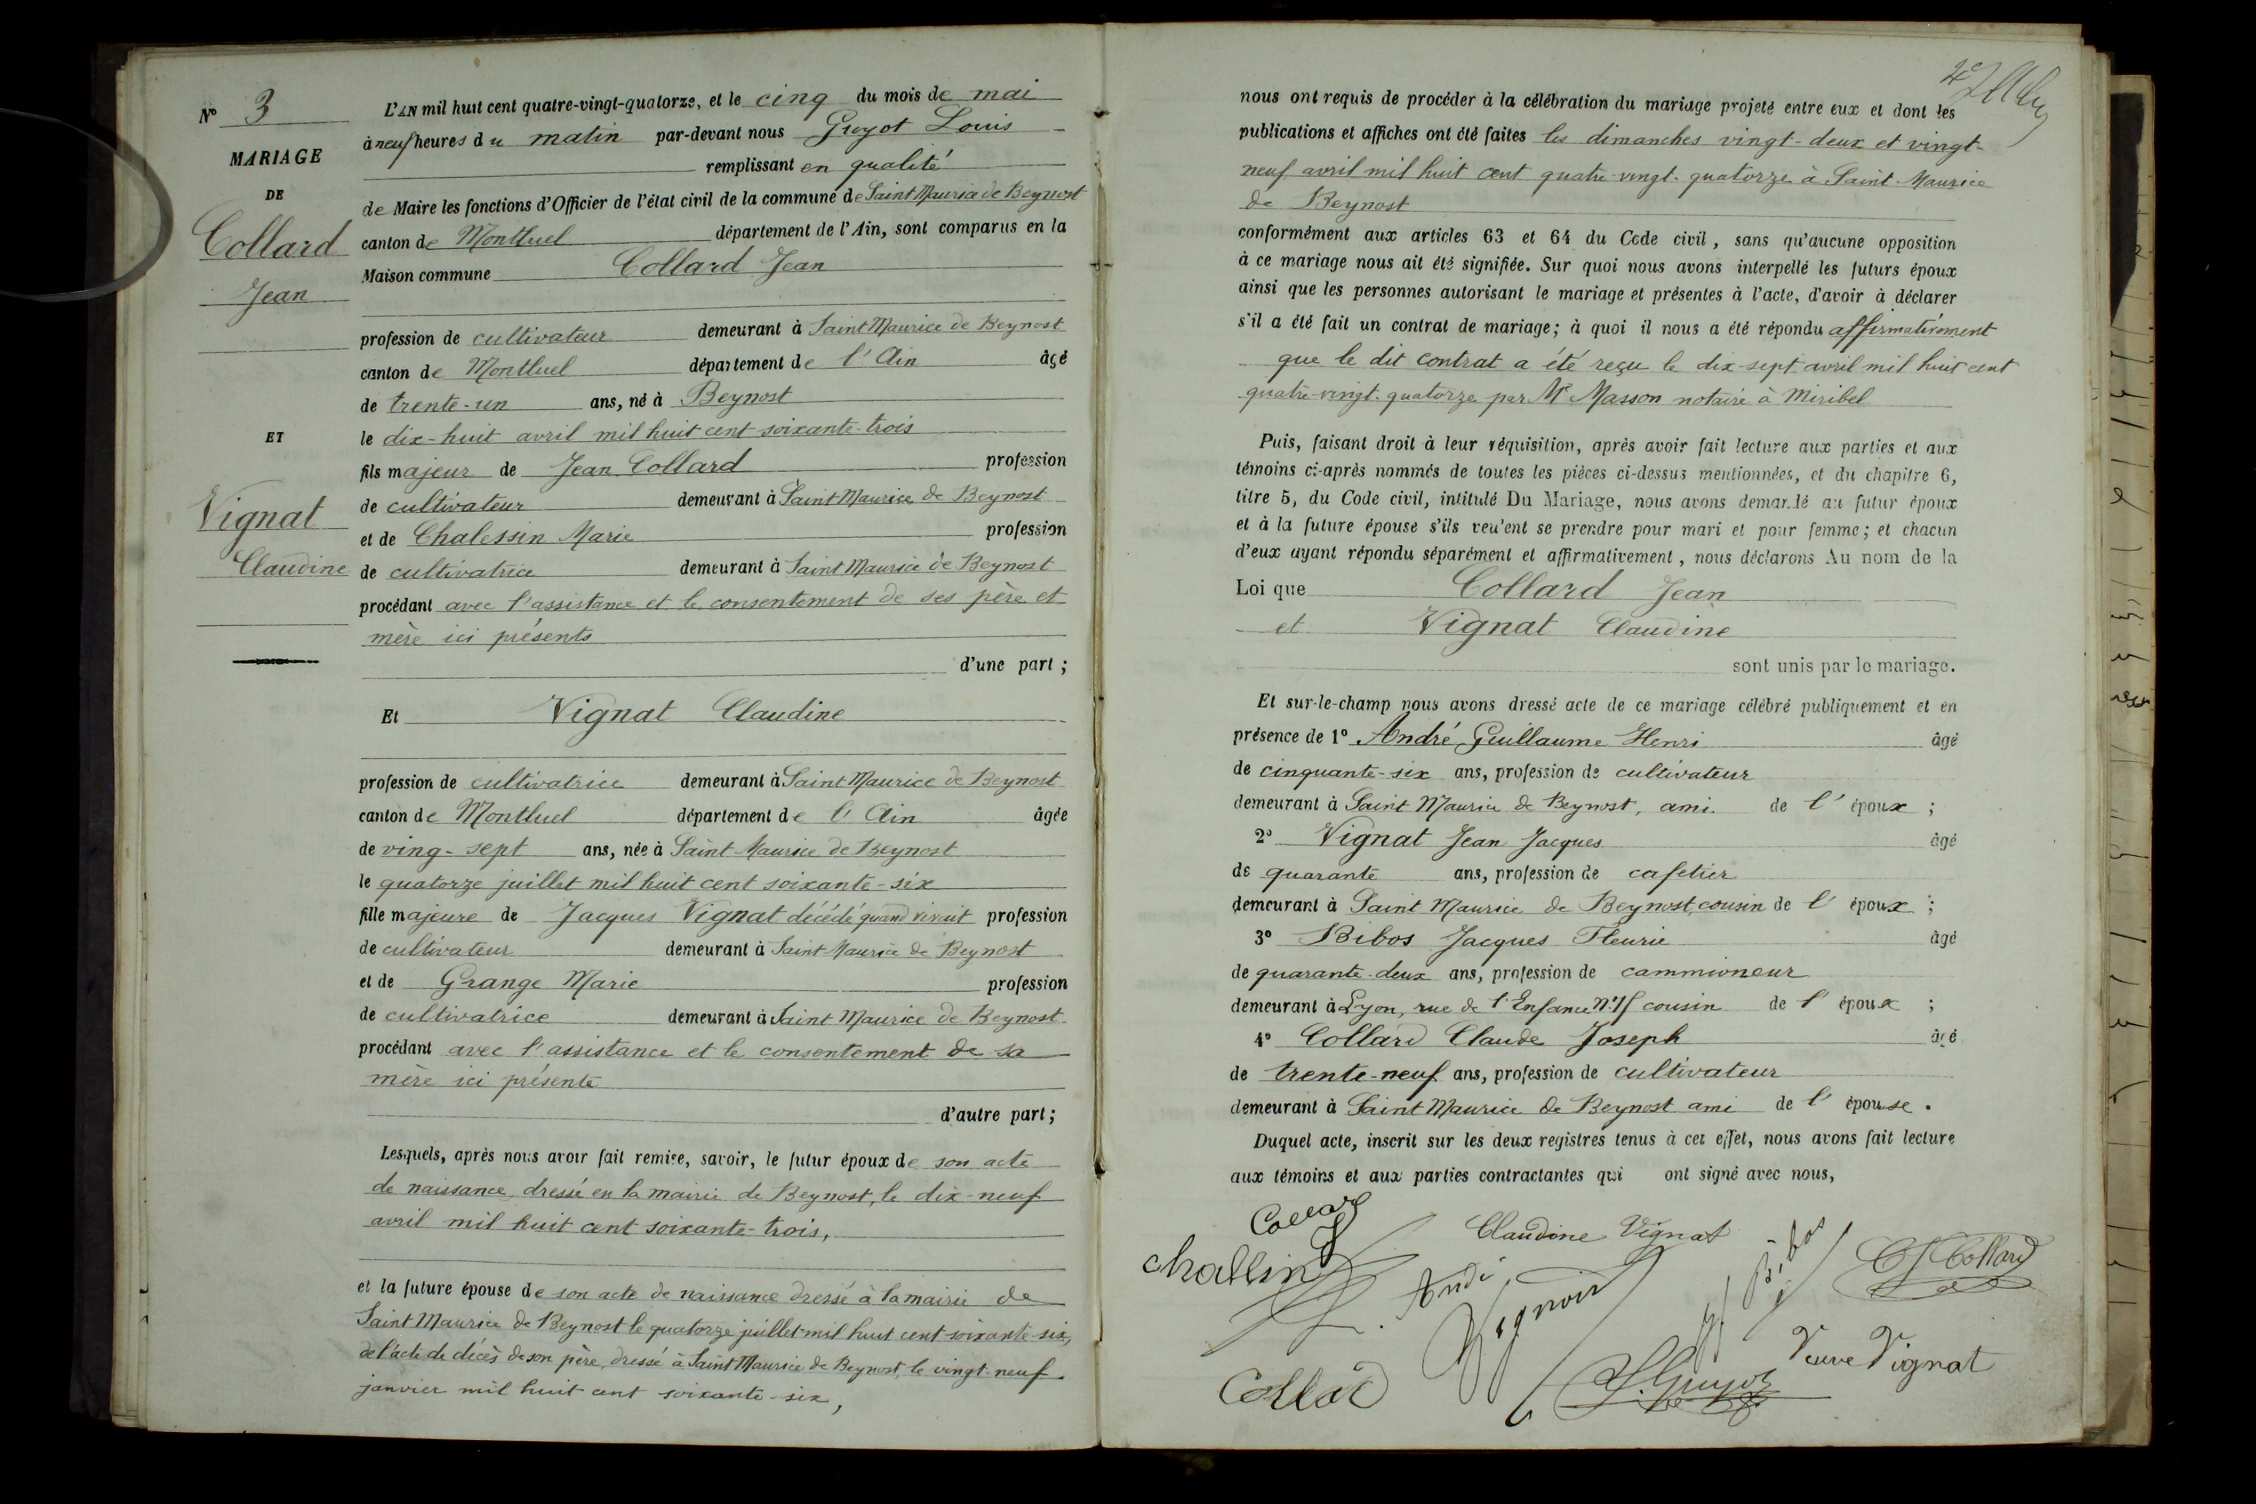 N° 3
MARIAGE
DE
Collard
Jean
ET
Vignat
Claudine
L'AN mil huit cent quatre-vingt-quatorze, et le cinq du mois de mai
à neuf heures du matin par-devant nous Guyot Louis
remplissant en qualité
de Maire les fonctions d'Officier de l'état civil de la commune de Saint Maurice de Beynost
canton de Montluel département de l'Ain, sont comparus en la
Maison commune Collard Jean
profession de cultivateur demeurant à Saint Maurice de Beynost
canton de Montluel département de l'Ain âgé
de trente-un ans, né à Beynost
le dix-huit avril mil huit cent soixante-trois
fils majeur de Jean Collard profession
de cultivateur demeurant à Saint Maurice de Beynost
et de Chalessin Marie profession
de cultivatrice demeurant à Saint Maurice de Beynost
procédant avec l'assistance et le consentement de ses père et
mère ici présents
d'une part ;
Et Vignat Claudine
profession de cultivatrice demeurant à Saint Maurice de Beynost
canton de Montluel département de l'Ain âgée
de ving-sept ans, née à Saint-Maurice de Beynost
le quatorze juillet mil huit cent soixante-six
fille majeure de Jacques Vignat décédé quand vivait profession
de cultivateur demeurant à Saint Maurice de Beynost
et de Grange Marie profession
de cultivatrice demeurant à Saint Maurice de Beynost
procédant avec l'assistance et le consentement de sa
mère ici présente
d'autre part ;
Lesquels, après nous avoir fait remise, savoir, le futur époux de son acte
de naissance dressé en la mairie de Beynost, le dix-neuf
avril mil huit cent soixante-trois,
et la future épouse de son acte de naissance dressé à la mairie de
Saint Maurice de Beynost le quatorze juillet mil huit cent soixante-six,
de l'acte de décès de son père, dressé à Saint Maurice de Beynost, le vingt-neuf
janvier mil huit cent soixante-six,
nous ont requis de procéder à la célébration du mariage projeté entre eux et dont les
publications et affiches ont été faites les dimanches vingt-deux et vingt-
neuf avril mil huit cent quatre-vingt-quatorze à Saint-Maurice
de Beynost
conformément aux articles 63 et 64 du Code civil, sans qu'aucune opposition
à ce mariage nous ait été signifiée. Sur quoi nous avons interpellé les futurs époux
ainsi que les personnes autorisant le mariage et présentes à l'acte, d'avoir à déclarer
s'il a été fait un contrat de mariage ; à quoi il nous a été répondu affirmativement
que le dit contrat a été reçu le dix-sept avril mil huit cent
quatre-vingt-quatorze par Me Masson notaire à Miribel
Puis, faisant droit à leur réquisition, après avoir fait lecture aux parties et aux
témoins ci-après nommés de toutes les pièces ci-dessus mentionnées, et du chapitre 6,
titre 5, du Code civil, intitulé Du Mariage, nous avons demandé au futur époux
et à la future épouse s'ils veulent se prendre pour mari et pour femme ; et chacun
d'eux ayant répondu séparément et affirmativement, nous déclarons Au nom de la
Loi que Collard Jean
et Vignat Claudine
sont unis par le mariage.
Et sur-le-champ nous avons dressé acte de ce mariage célébré publiquement et en
présence de 1° André Guillaume Henri âgé
de cinquante-six ans, profession de cultivateur
demeurant à Saint Maurice de Beynost, ami de l'époux ;
2° Vignat Jean Jacques âgé
de quarante ans, profession de cafetier
demeurant à Saint Maurice de Beynost, cousin de l'époux ;
3° Bibos Jacques Fleurie âgé
de quarante-deux ans, profession de cammioneur
demeurant à Lyon, rue de l'Enfance N° cousin de l'époux ;
4° Collard Claude Joseph âgé
de trente-neuf ans, profession de cultivateur
demeurant à Saint Maurice de Beynost ami de l'épouse.
Duquel acte, inscrit sur les deux registres tenus à cet effet, nous avons fait lecture
aux témoins et aux parties contractantes qui ont signé avec nous,
Collard
Claudine Vignat
Bibos
C J Collard
challin
André
Vignat
Veuve Vignat
Collard
L. Guyot